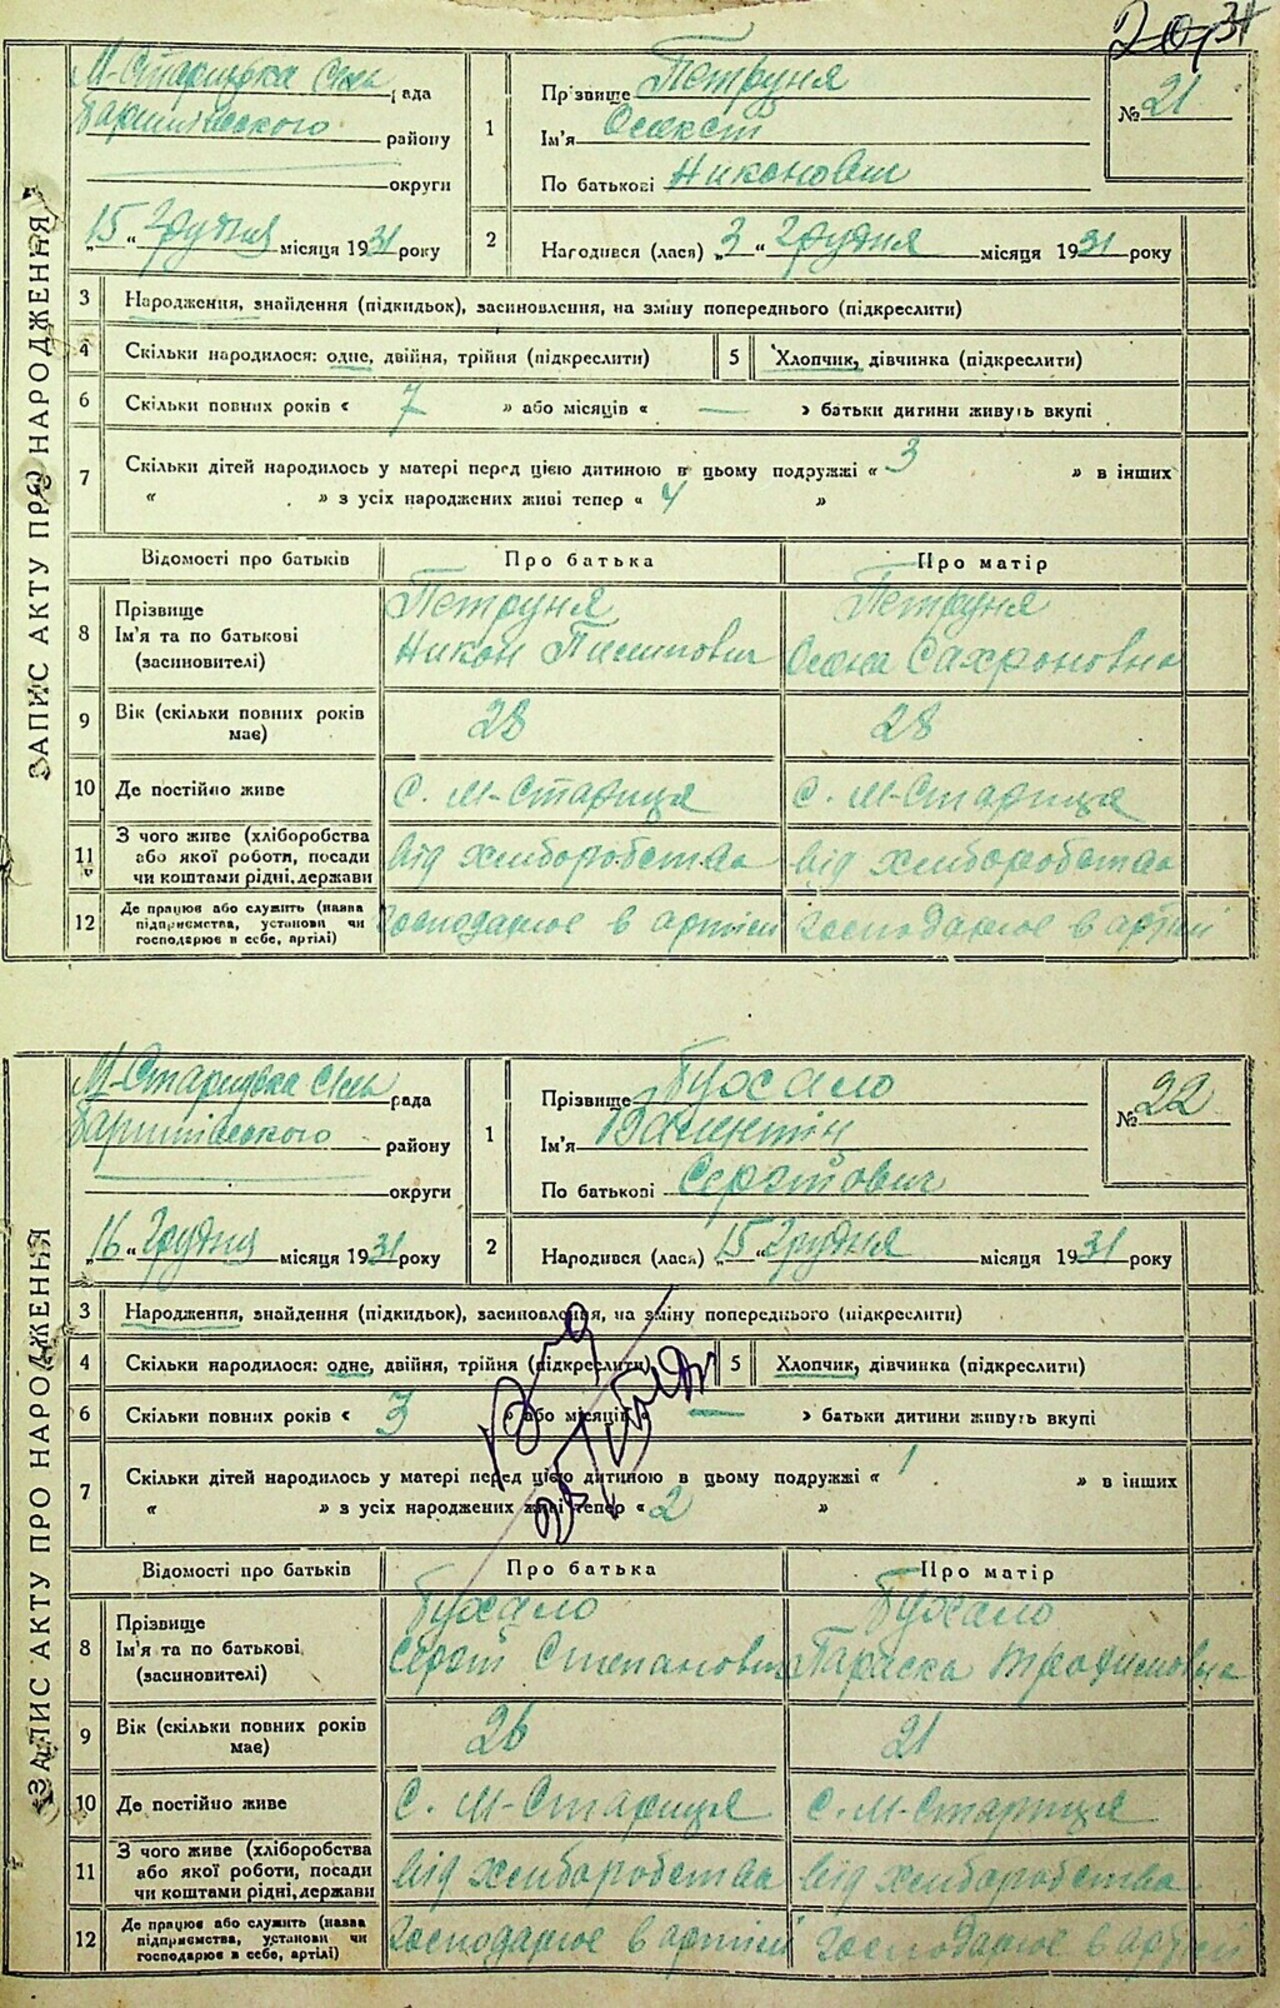 31
ЗАПИС АКТУ ПРО НАРОДЖЕННЯ
М-Старицька сіль рада
Баришівського району
округи
„15“ Грудня місяця 1931 року
1
Прізвище Петруня
Ім'я Олексій
По батькові Никонович
№ 21
2
Народився (лася) „3“ Грудня місяця 1931 року
3 Народження, знайдення (підкидьок), засиновлення, на зміну попереднього (підкреслити)
4 Скільки народилося: одне, двійня, трійня (підкреслити) 5 Хлопчик, дівчинка (підкреслити)
6 Скільки повних років « 7 » або місяців « — » батьки дитини живуть вкупі
7 Скільки дітей народилось у матері перед цією дитиною в цьому подружжі « 3 » в інших
« » з усіх народжених живі тепер « 4 »
Відомості про батьків Про батька Про матір
8 Прізвище Петруня Петруня
Ім'я та по батькові Никон Пилипович Олена Сахроновна
(засиновителі)
9 Вік (скільки повних років має) 28 28
10 Де постійно живе с. М-Стариця с. М-Стариця
11 З чого живе (хліборобства
або якої роботи, посади від хліборобства від хліборобства
чи коштами рідні, держави
12 Де працює або служить (назва
підприємства, установи чи господарює в артілі господарює в артілі
господарює в себе, артілі)
ЗАПИС АКТУ ПРО НАРОДЖЕННЯ
М-Старицька сіль рада
Баришівського району
округи
„16“ Грудня місяця 1931 року
1
Прізвище Бухало
Ім'я Валентін
По батькові Сергійович
№ 22
2
Народився (лася) „15“ Грудня місяця 1931 року
3 Народження, знайдення (підкидьок), засиновлення, на зміну попереднього (підкреслити)
4 Скільки народилося: одне, двійня, трійня (підкреслити) 5 Хлопчик, дівчинка (підкреслити)
6 Скільки повних років « 3 » або місяців « — » батьки дитини живуть вкупі
7 Скільки дітей народилось у матері перед цією дитиною в цьому подружжі « 1 » в інших
« » з усіх народжених живі тепер « 2 »
Відомості про батьків Про батька Про матір
8 Прізвище Бухало Бухало
Ім'я та по батькові Сергій Степанович Параска Трофимовна
(засиновителі)
9 Вік (скільки повних років має) 26 21
10 Де постійно живе с. М-Стариця с. М-Стариця
11 З чого живе (хліборобства
або якої роботи, посади від хліборобства від хліборобства
чи коштами рідні, держави
12 Де працює або служить (назва
підприємства, установи чи господарює в артілі господарює в артілі
господарює в себе, артілі)